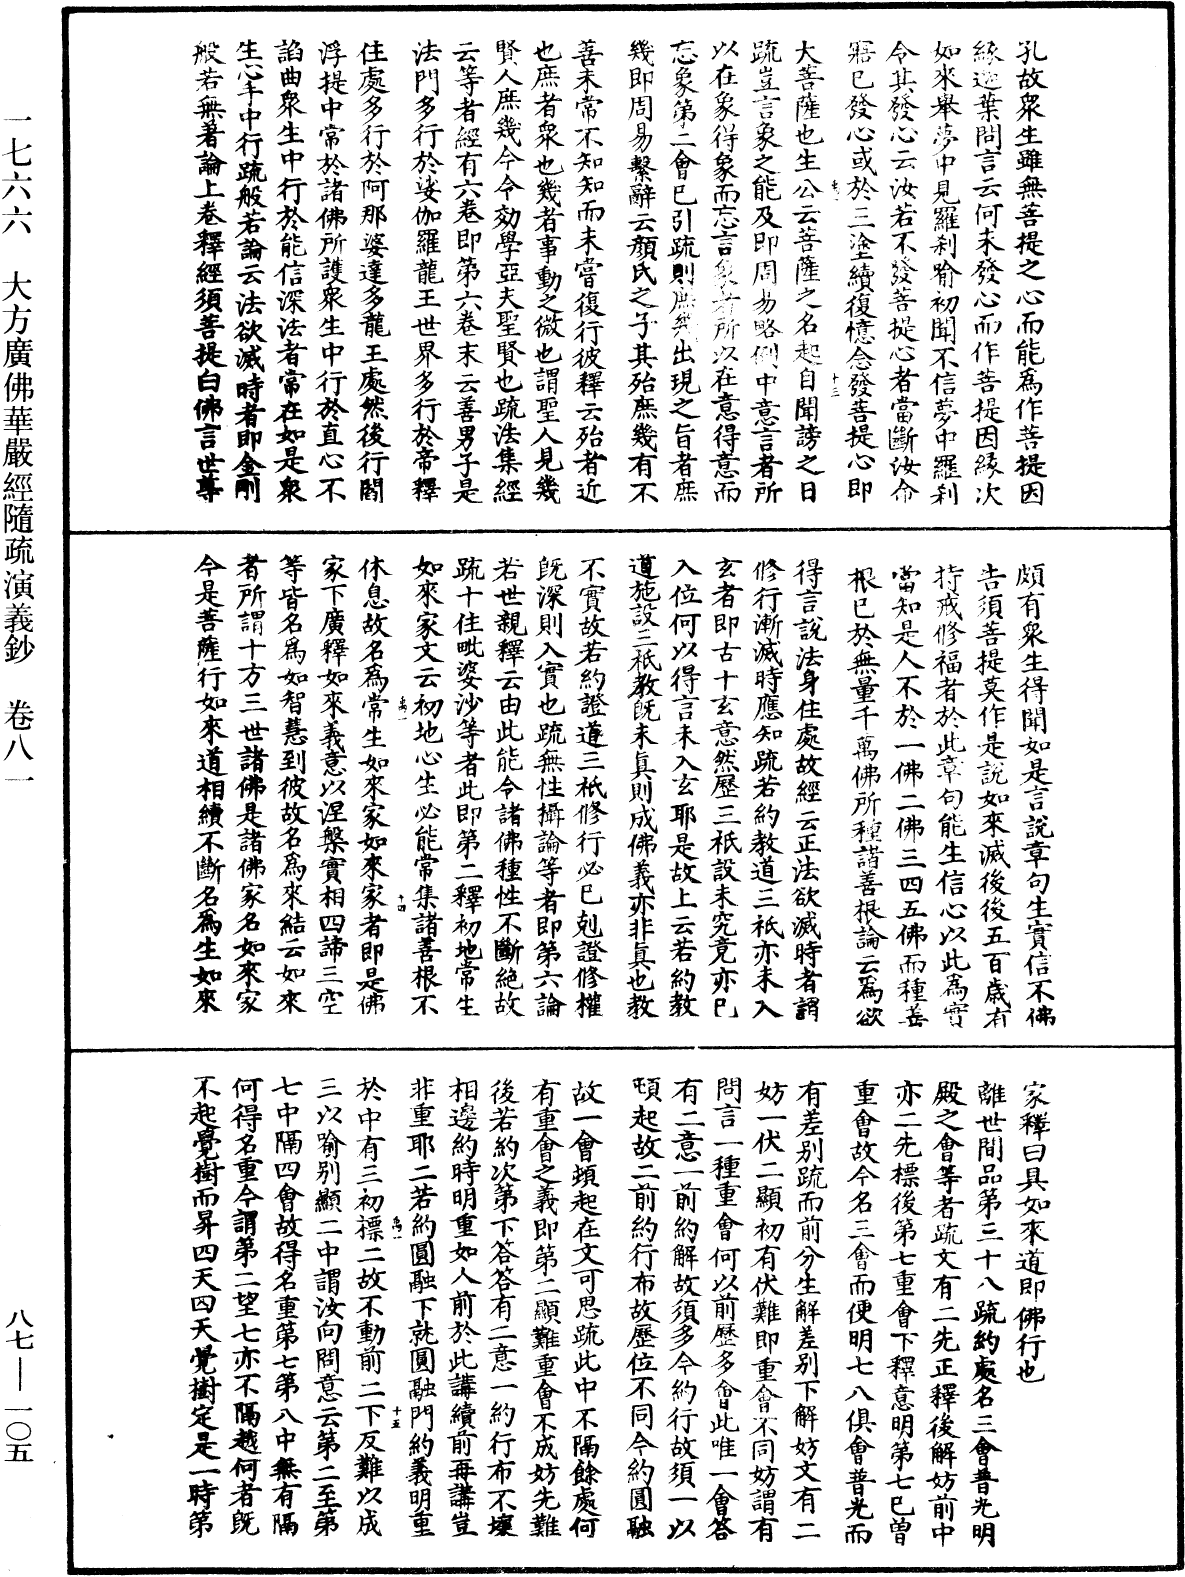 孔故衆生雖無菩提之心而能爲作菩提因
緣迦葉問言云何未發心而作菩提因緣次
如來舉夢中見羅刹喻初聞不信夢中羅刹
令其發心云汝若不發菩提心者當斷汝命
寤已發心或於三塗續復憶念發菩提心即
大菩薩也生公云菩薩之名起自聞謗之日
疏豈言象之能及即周易略例中意言者所
以在象得象而忘言象者所以在意得意而
忘象第二會已引疏則庶幾出現之旨者庶
幾即周易繫辭云顔氏之子其殆庶幾有不
善未常不知知而未嘗復行彼釋云殆者近
也庶者衆也幾者事動之微也謂聖人見幾
賢人庶幾今令効學亞夫聖賢也疏法集經
云等者經有六卷即第六卷末云善男子是
法門多行於娑伽羅龍王世界多行於帝釋
住處多行於阿那婆達多龍王處然後行閻
浮提中常於諸佛所護衆生中行於直心不
諂曲衆生中行於能信深法者常在如是衆
生心手中行疏般若論云法欲滅時者即金剛
般若無著論上卷釋經須菩提白佛言世尊
頗有衆生得聞如是言說章句生實信不佛
告須菩提莫作是說如來滅後後五百歲有
持戒修福者於此章句能生信心以此爲實
當知是人不於一佛二佛三四五佛而種善
根已於無量千萬佛所種諸善根論云爲欲
得言說法身住處故經云正法欲滅時者謂
修行漸滅時應知疏若約教道三祇亦未入
玄者即古十玄意然歷三祇設未究竟亦已
入位何以得言未入玄耶是故上云若約教
道施設三祇教旣未眞則成佛義亦非眞也教
不實故若約證道三祇修行必已剋證修權
旣深則入實也疏無性攝論等者即第六論
若世親釋云由此能令諸佛種性不斷絕故
疏十住毗婆沙等者此即第二釋初地常生
如來家文云初地心生必能常集諸善根不
休息故名爲常生如來家如來家者即是佛
家下廣釋如來義意以涅槃實相四諦三空
等皆名爲如智慧到彼故名爲來結云如來
者所謂十方三世諸佛是諸佛家名如來家
今是菩薩行如來道相續不斷名爲生如來
家釋曰具如來道即佛行也
離世間品第三十八疏約處名三會普光明
殿之會等者疏文有二先正釋後解妨前中
亦二先標後第七重會下釋意明第七已曾
重會故今名三會而便明七八俱會普光而
有差別疏而前分生解差別下解妨文有二
妨一伏二顯初有伏難即重會不同妨謂有
問言一種重會何以前歷多會此唯一會答
有二意一前約解故須多今約行故須一以
頓起故二前約行布故歷位不同今約圓融
故一會頓起在文可思疏此中不隔餘處何
有重會之義即第二顯難重會不成妨先難
後若約次第下答答有二意一約行布不壞
相邊約時明重如人前於此講續前再講豈
非重耶二若約圓融下就圓融門約義明重
於中有三初標二故不動前二下反難以成
三以喻別顯二中謂汝向問意云第二至第
七中隔四會故得名重第七第八中無有隔
何得名重今謂第二望七亦不隔越何者旣
不起覺樹而昇四天四天覺樹定是一時第
一七六六　大方廣佛華嚴經隨疏演義鈔　卷八一
八七—一〇五